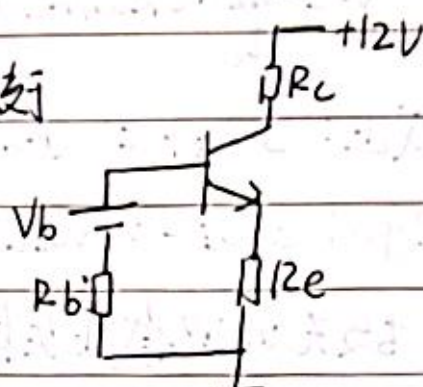 +12V
Rc
Vb
Rb
Re